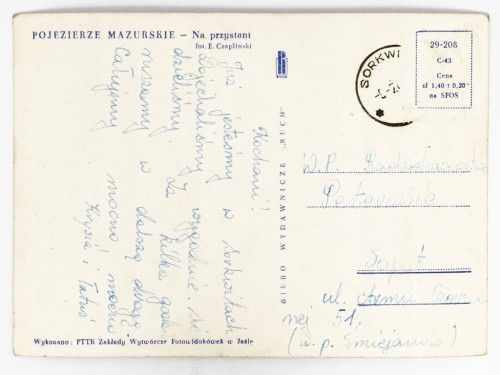 POJEZIERZE MAZURSKIE — Na przystani
fot. E. Czapliński
Kochani!
Już jesteśmy w Sorkwitach
Dojechaliśmy wygodnie. Sie
dzieliśmy. Za kilka godz
ruszamy w dalszą drogę.
Całujemy mocno mocno
Krysia i Tatuś
BIURO WYDAWNICZE „RUCH"
SORKWI
29-208
C-43
Cena
zł 1,40 + 0,20
na SFOS
W.P.
Sopot
ul. Armii
nej 51,
(w. p.
Wykonano: PTTK Zakłady Wytwórcze Fotowidokówek w Jaśle